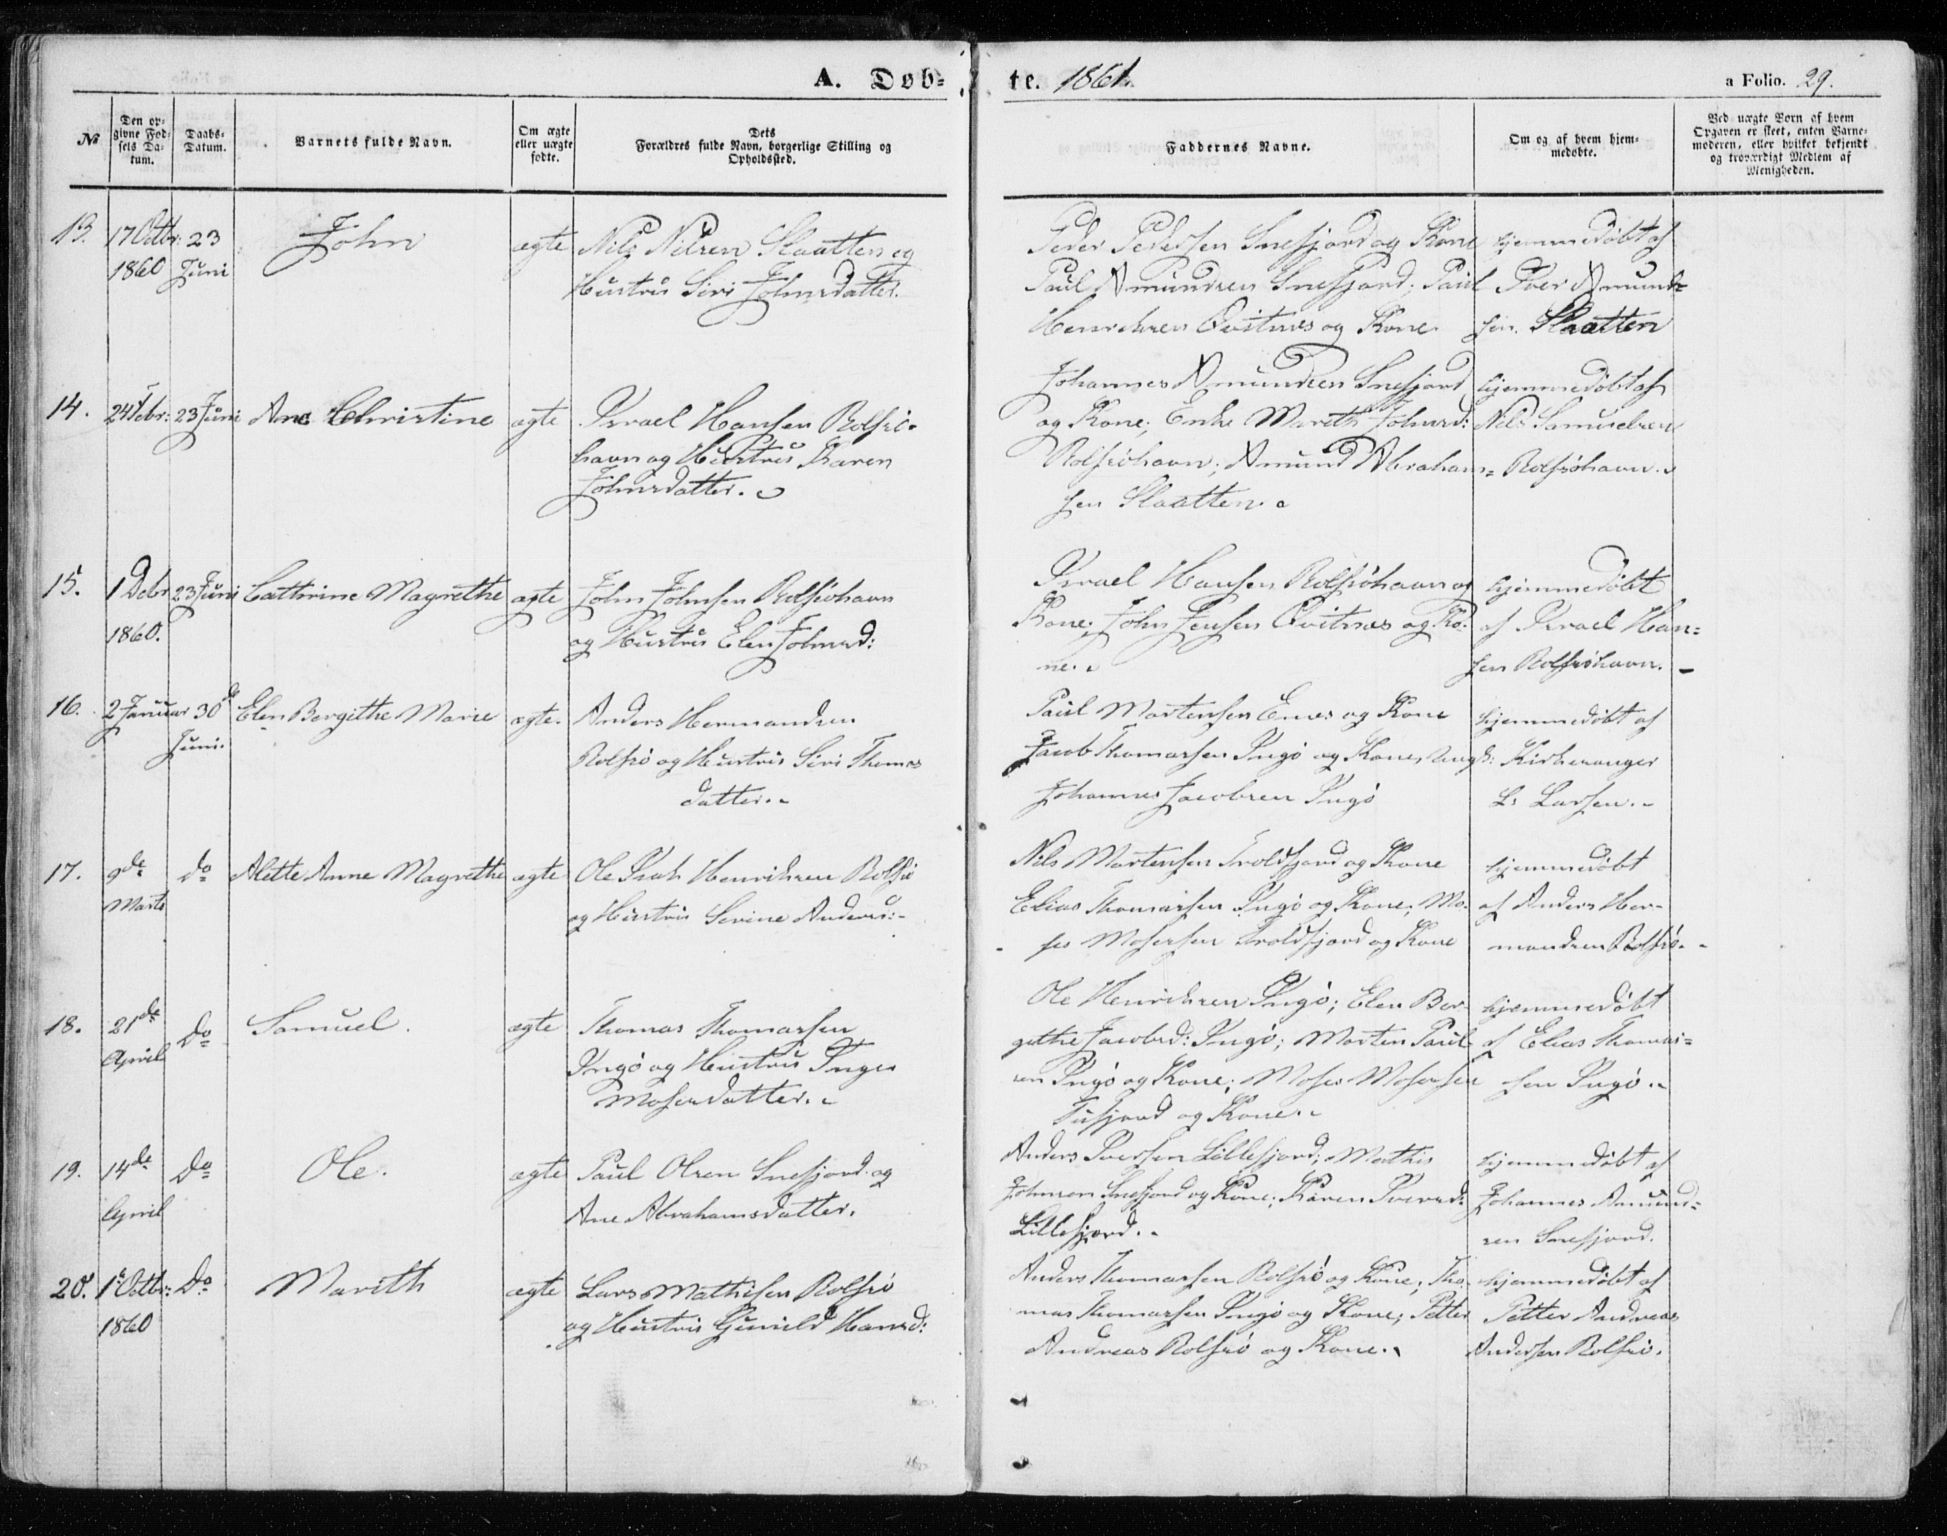 A. Døbte. 1861. a Folio. 29.
№
Den opgivne Fødsels Datum.
Daabs-Datum.
Barnets fulde Navn.
Om ægte eller uægte fødte.
Dets Forældres fulde Navn, borgerlige Stilling og Opholdssted.
Faddernes Navne.
Om og af hvem hjemmedøbte.
Ved uægte Børn af hvem Opgaven er skeet, enten Barnemoderen, eller hvilket bekjendt og troværdigt Medlem af Menigheden.
13.
17 Octbr:
1860
23
Juni
John
ægte
Nils Nilsen Slaatten og
Hustru Siri Johnsdatter.
Peder Pedersen Snefjord og Kone
Paul Amundsen Snefjord; Paul
Henriksen Qvitnes og Kone
hjemmedøbt af
Iver Amund=
sen. Slaatten
14.
24 Febr:
23 Juni
Ane Christine
ægte
Israel Hansen Rolfsö-
havn og Hustru Karen
Johnsdatter.
Johannes Amundsen Snefjord
og Kone; Enke Mareth Johnsd:
Rolfsöhavn; Amund Abraham=
sen Slaatten.
hjemmedøbt af
Nils Samuelsen
Rolfsöhavn.
15.
1 Debr
1860.
23 Juni
Cathrine Magrethe
ægte
John Johnsen Rolfsöhavn
og Hustru Elen Johnsd:
Israel Hansen Rolfsöhavn og
Kone; John Jensen Qvitnes og Ko-
ne.
hjemmedøbt
af Israel Han=
sen Rolfsöhavn.
16.
2 Januar
30 de
Juni.
Elen Bergithe Marie
ægte.
Anders Hermandsen
Rolfsö og Hustru Siri Thomas
datter.
Paul Mortensen Enes og Kone
Jacob Thomassen Ingö og Kone, Ungk:
Johannes Jacobsen Ingö
hjemmedøbt af
Kirkesanger
L: Larsen.
17.
9de
Marts
Do
Alette Anne Magrethe
ægte
Ole Isak Henriksen Rolfsö
og Hustru Serine Andersd:
Nils Mortensen Troldfjord og Kone
Elias Thomassen Ingö og Kone; Mo-
ses Mosessen Troldfjord og Kone
hjemmedøbt
af Anders Her-
mandsen Rolfsö.
18.
21de
April
Do
Samuel.
ægte
Thomas Thomassen
Ingö og Hustru Inger
Mosesdatter.
Ole Henriksen Ingö; Elen Ber-
gethe Jacobsd: Ingö; Morten Paul-
sen Ingö og Kone; Moses Mosessen
Tufjord og Kone.
hjemmedøbt
af Elias Thomas=
sen Ingö.
19.
14de
April
Do
Ole.
ægte
Paul Olsen Snefjord og
Ane Abrahamsdatter.
Anders Iversen Lillefjord; Mathis
Johnsen Snefjord og Kone; Karen Iversd:
Lillefjord.
hjemmedøbt af
Johannes Amund=
sen Snefjord.
20.
1 Octbr:
1860
Do
Marith
ægte
Lars Mathisen Rolfsö
og Hustru Gunild Hansd:
Anders Thomassen Rolfsö og Kone; Tho-
mas Thomassen Ingö og Kone; Petter
Andreas Rolfsö og Kone.
hjemmedøbt af
Petter Andreas
Andersen Rolfsö.